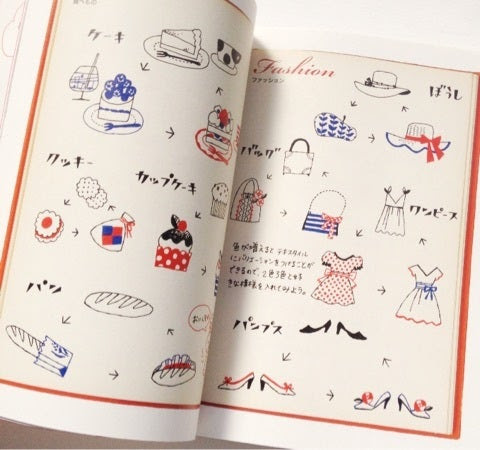 食べもの
ケーキ
クッキー
カップケーキ
パン
おいしい
Fashion
ファッション
ぼうし
バッグ
ワンピース
色が増えるとテキスタイル
にバリエーションをつけることが
できるので、2色3色とす
きな模様を入れてみよう。
パンプス